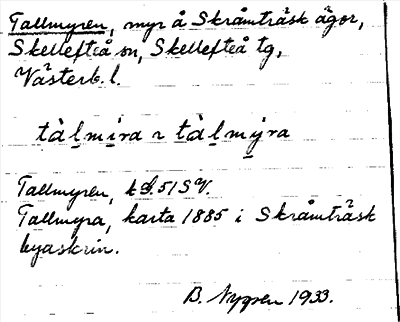 Tallmyren, myr å Skråmträsk ägor,
Skellefteå sn, Skellefteå tg,
Västerb. l.
tàl̲mi̲ra ~ tàl̲mẏ̲ra
Tallmyren, k 51 SV.
Tallmyra, karta 1885 i Skråmträsk
byaskrin.
B. Nygren 1933.